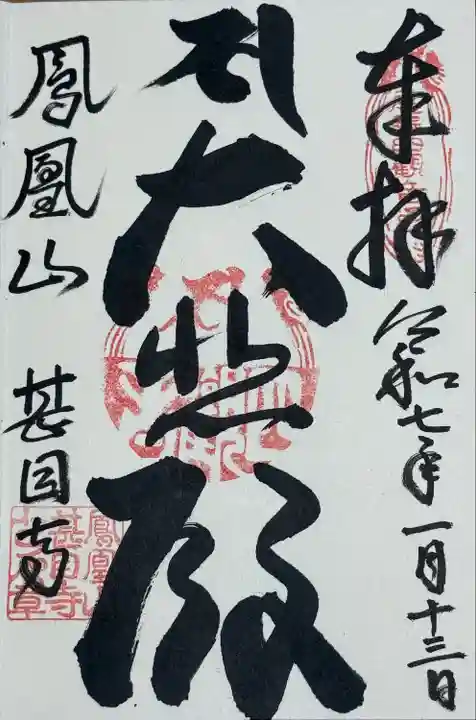 奉拝
令和七年一月十三日
大悲殿
鳳凰山 甚目寺
鳳凰山
甚目寺